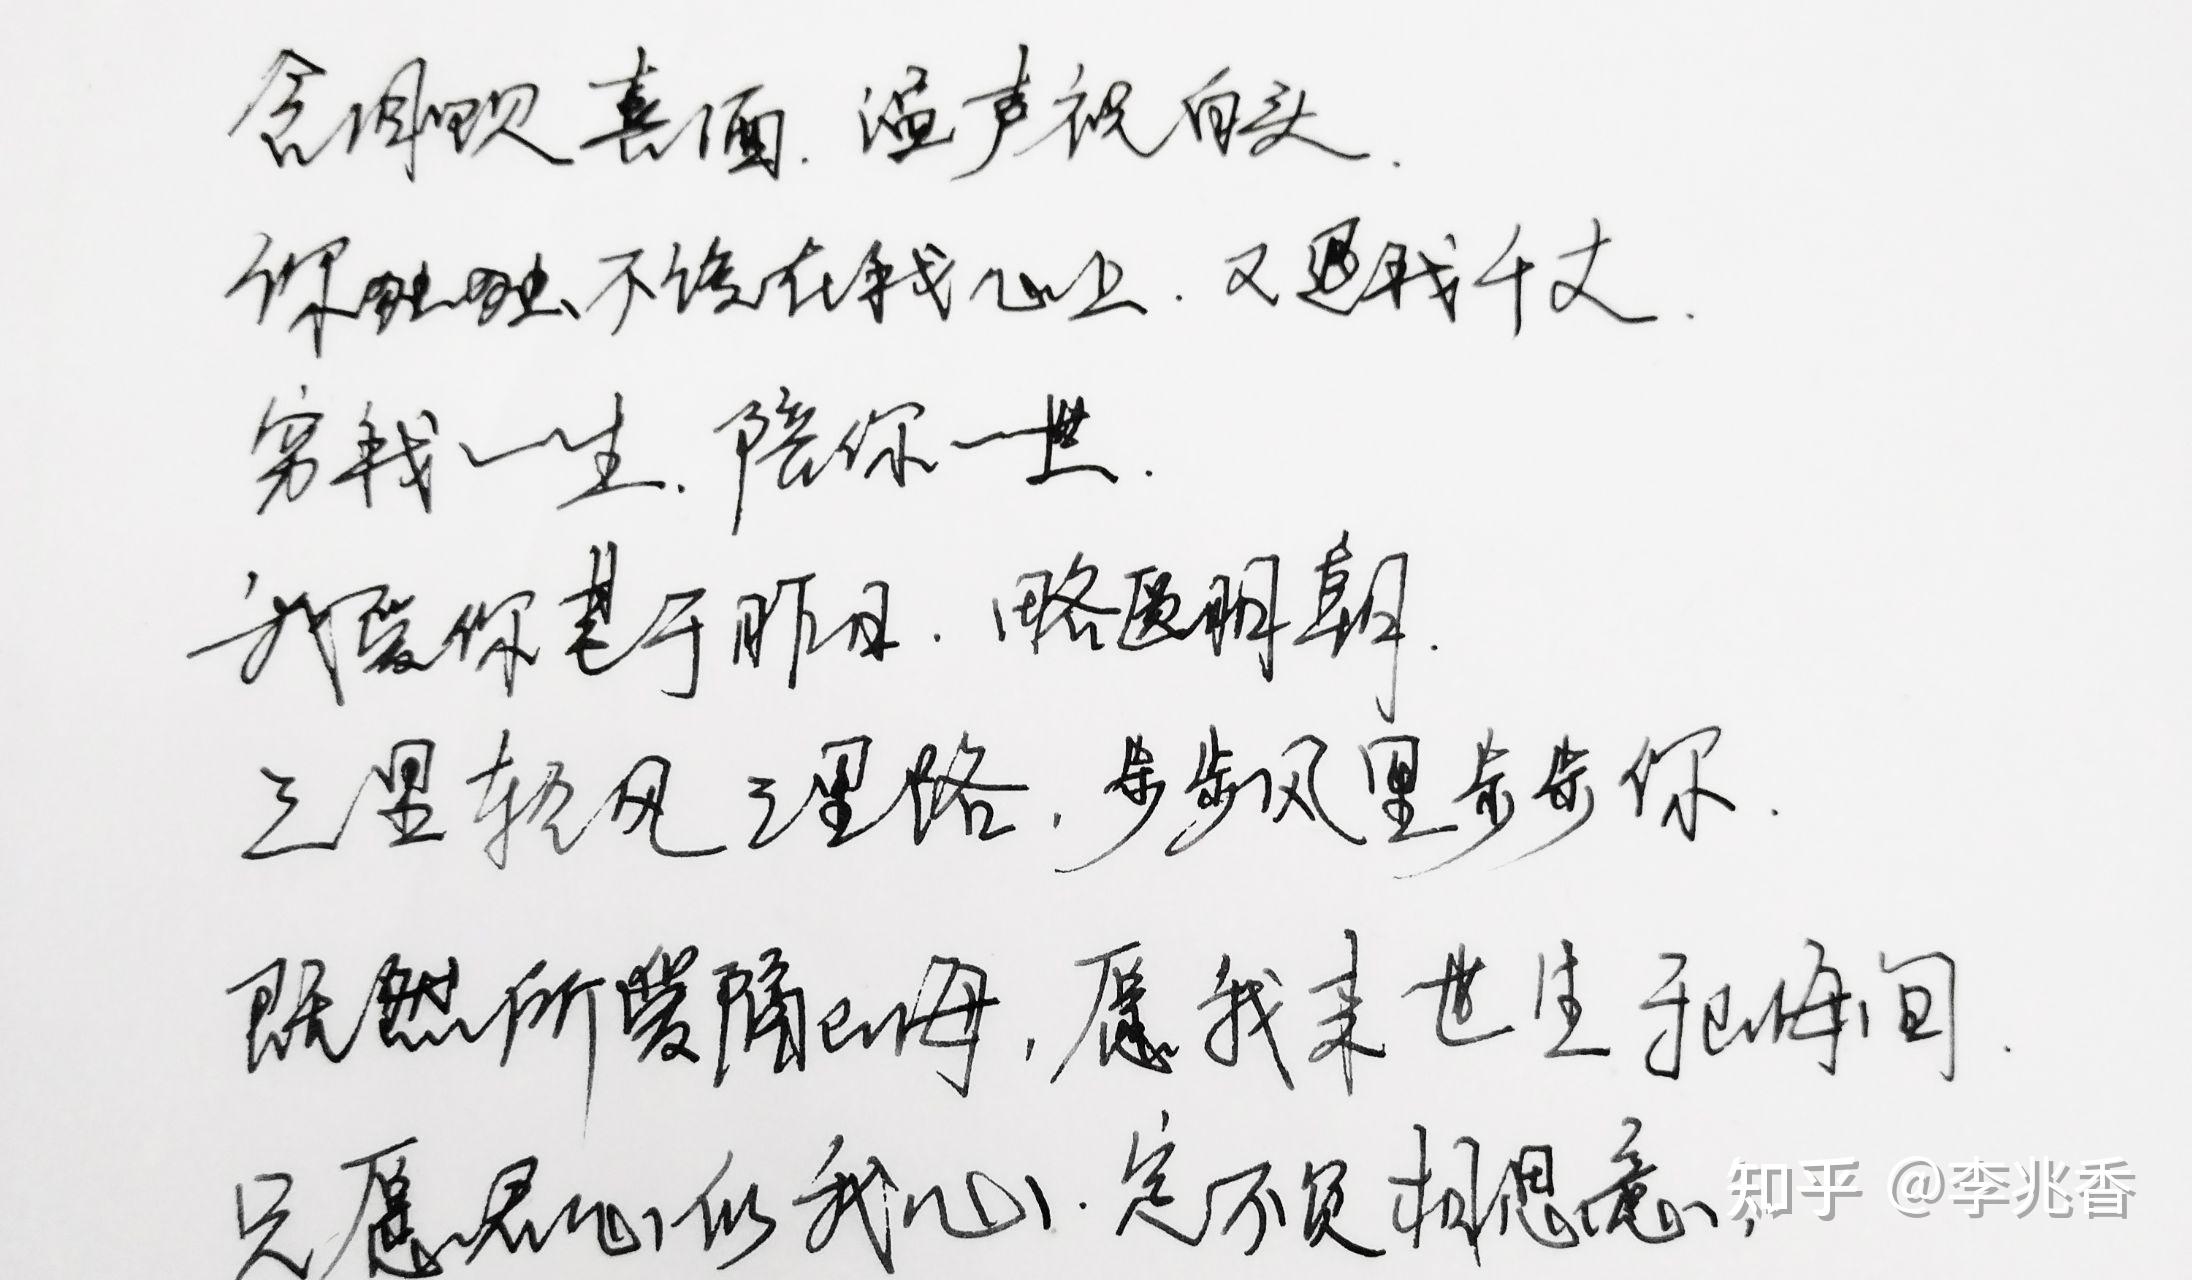 含眉喜面.温声祝白头.
你独独不该在我心上.又思我千丈.
穷我一生.陪你一世.
我爱你基于昨日.略医明朝.
三里轻风三里路,步步风里步步你.
既然所爱隔山海,愿我来世生于山海间.
只愿君心似我心.定不负相思意.
知乎 @李兆香